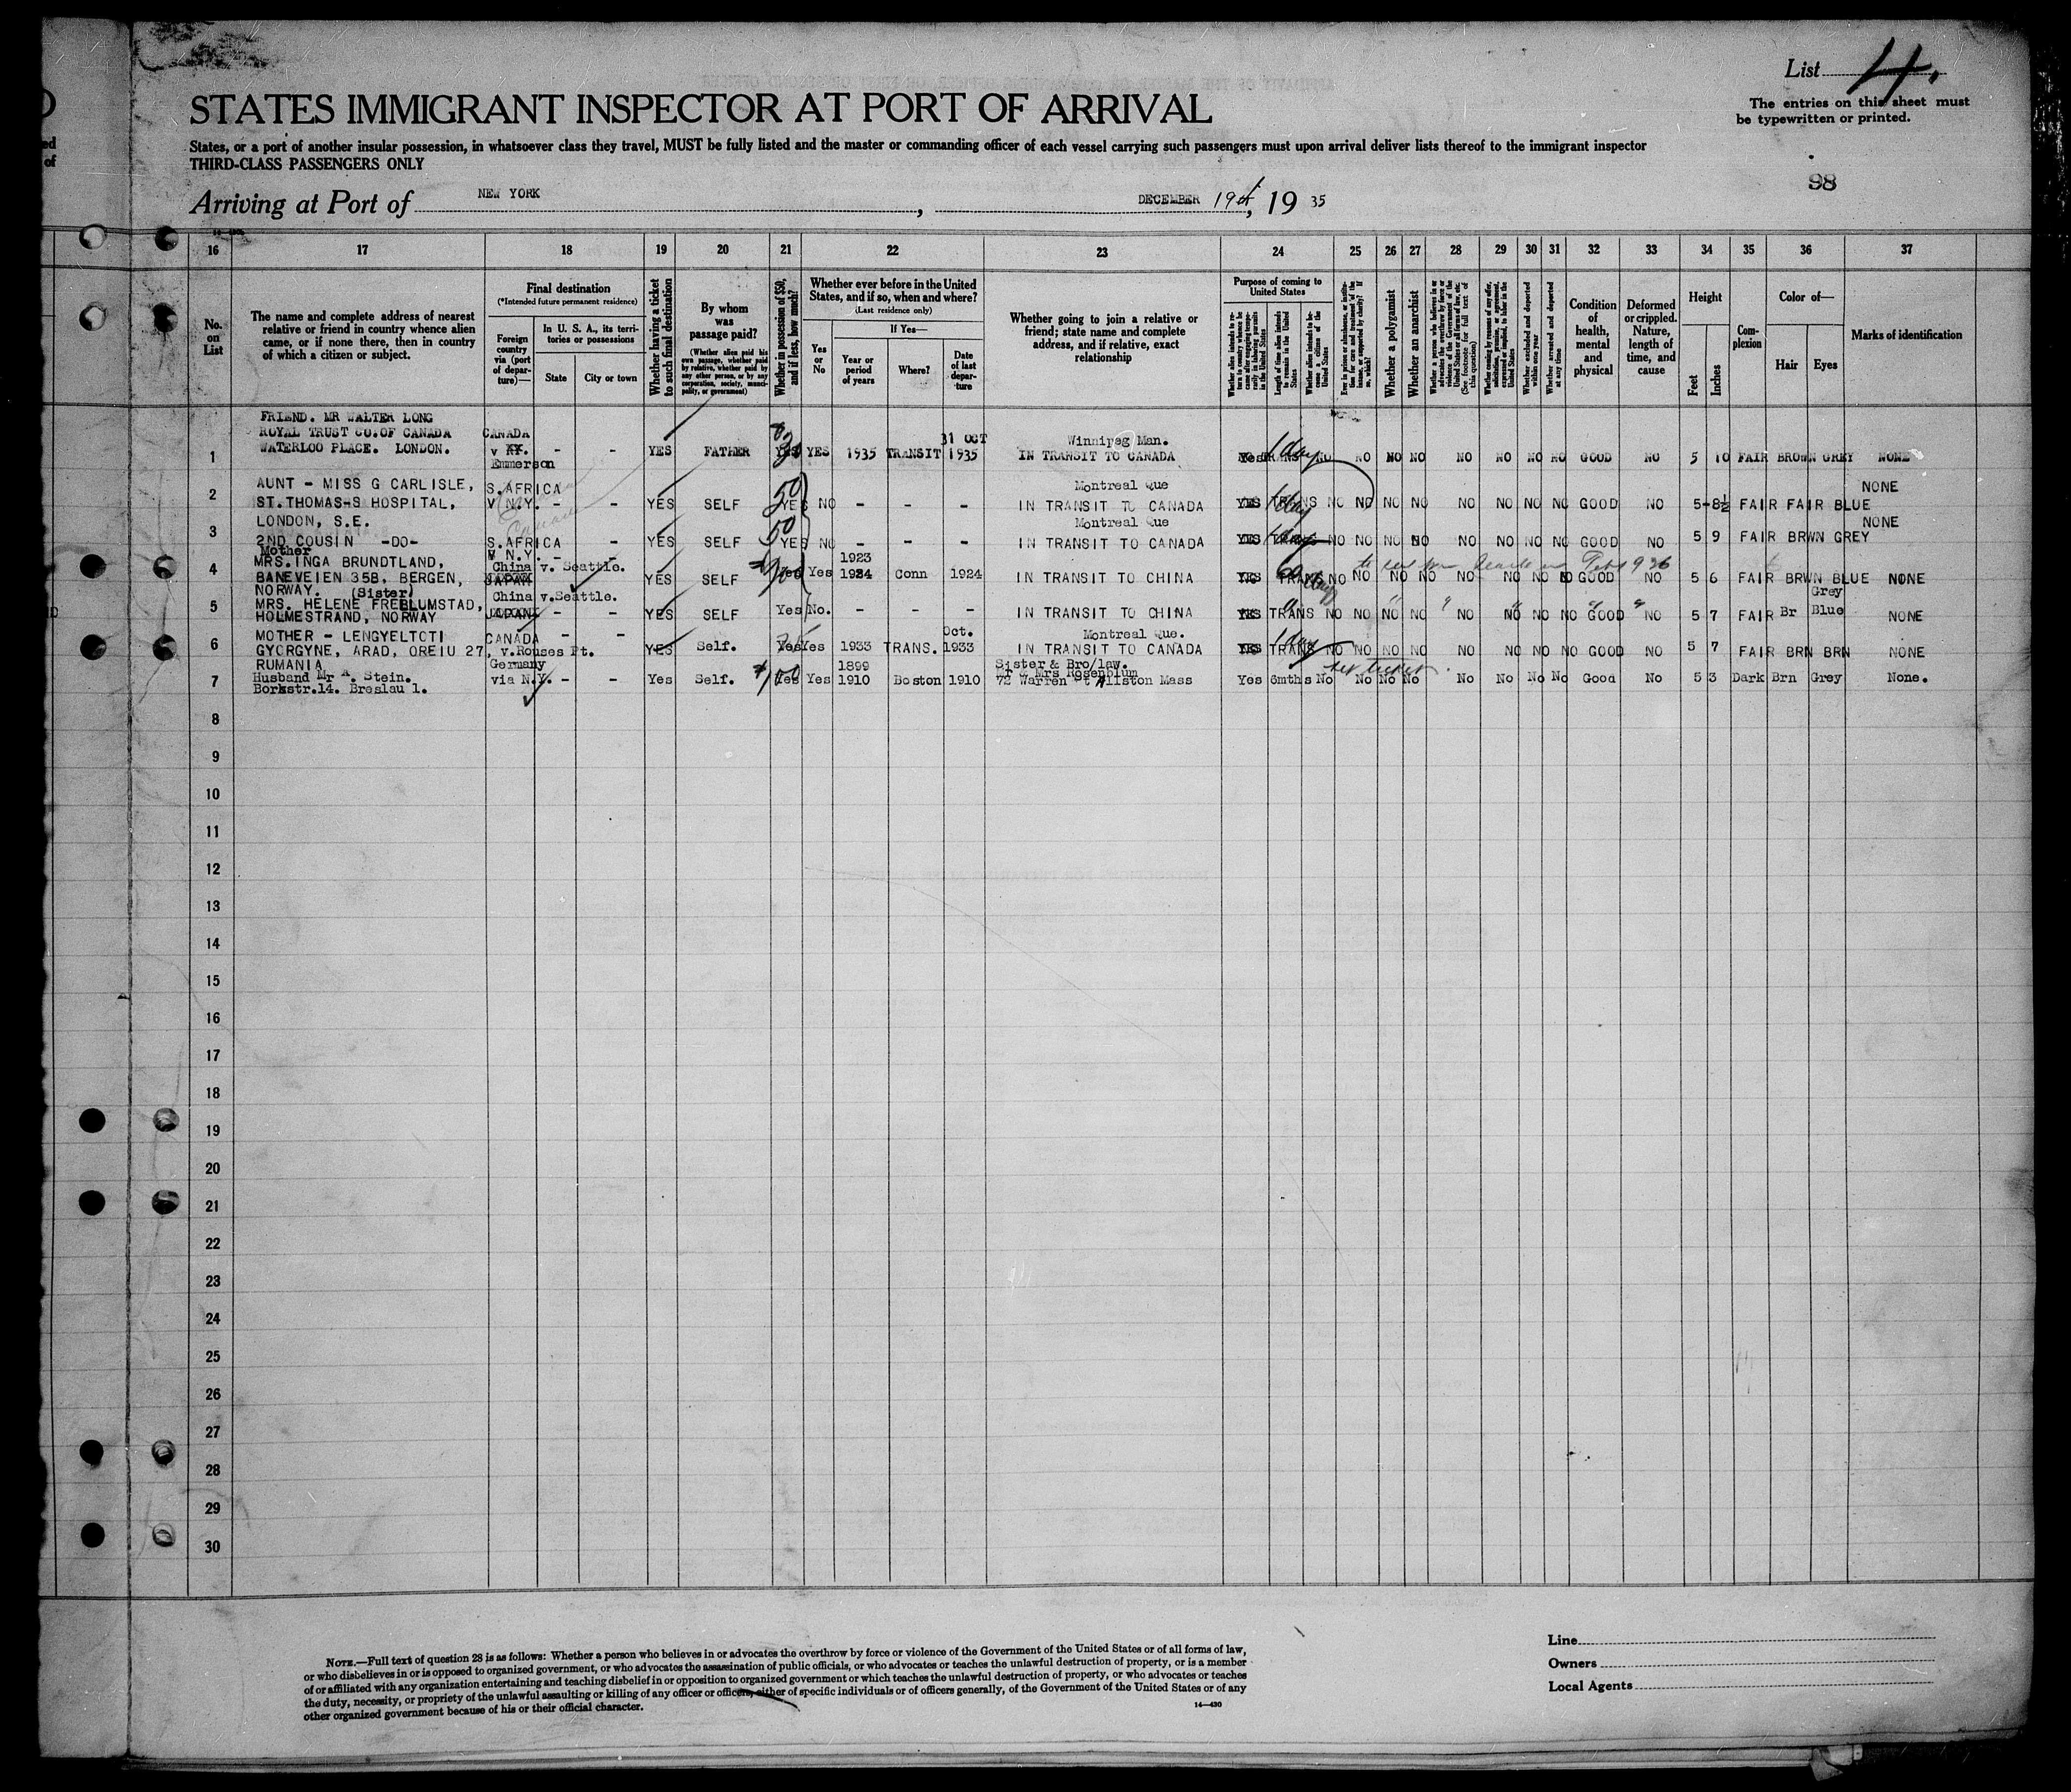 List 4.
The entries on this sheet must
be typewritten or printed.
STATES IMMIGRANT INSPECTOR AT PORT OF ARRIVAL
States, or a port of another insular possession, in whatsoever class they travel, MUST be fully listed and the master or commanding officer of each vessel carrying such passengers must upon arrival deliver lists thereof to the immigrant inspector
THIRD-CLASS PASSENGERS ONLY
98
Arriving at Port of NEW YORK, DECEMBER 19th, 19 35
16 17 18 19 20 21 22 23 24 25 26 27 28 29 30 31 32 33 34 35 36 37
No. on List
The name and complete address of nearest relative or friend in country whence alien came, or if none there, then in country of which a citizen or subject.
Final destination
(*Intended future permanent residence)
Foreign country via (port of departure)—
In U. S. A., its territories or possessions
State
City or town
Whether having a ticket to such final destination
By whom was passage paid?
(Whether alien paid his own passage, whether paid by relative, whether paid by any other person, or by any corporation, society, municipality, or government)
Whether in possession of $50, and if less, how much?
Whether ever before in the United States, and if so, when and where?
(Last residence only)
Yes or No
If Yes—
Year or period of years
Where?
Date of last departure
Whether going to join a relative or friend; state name and complete address, and if relative, exact relationship
Purpose of coming to United States
Whether alien intends to return to country whence he came after engaging temporarily in laboring pursuits in the United States
Length of time alien intends to remain in the United States
Whether alien intends to become a citizen of the United States
Ever in prison or almshouse, or institution for care and treatment of the insane, or supported by charity? If so, which?
Whether a polygamist
Whether an anarchist
Whether a person who believes in or advocates the overthrow by force or violence of the Government of the United States or all forms of law, etc. (See footnote for full text of this question)
Whether coming by reason of any offer, solicitation, promise, or agreement, expressed or implied, to labor in the United States
Whether excluded and deported within one year
Whether arrested and deported at any time
Condition of health, mental and physical
Deformed or crippled. Nature, length of time, and cause
Height
Feet
Inches
Complexion
Color of—
Hair
Eyes
Marks of identification
FRIEND. MR WALTER LONG
ROYAL TRUST CO.OF CANADA CANADA 31 OCT Winnipeg Man.
1 WATERLOO PLACE. LONDON. v NY. - - YES FATHER YES YES 1935 TRANSIT 1935 IN TRANSIT TO CANADA Yes 1 day NO NO NO NO NO NO NO NO GOOD NO 5 10 FAIR BROWN GREY NONE
Emmerson
AUNT - MISS G CARLISLE, S.AFRICA 50 Montreal Que NONE
2 ST.THOMAS-S HOSPITAL, V N.Y. - - YES SELF YES NO - - - IN TRANSIT TO CANADA YES TRANS 1 day NO NO NO NO NO NO NO NO GOOD NO 5-8½ FAIR FAIR BLUE
LONDON, S.E. 50 Montreal Que NONE
3 2ND COUSIN -DO- S.AFRICA - YES SELF YES NO - - - IN TRANSIT TO CANADA YES TRANS 1 day NO NO NO NO NO NO NO NO GOOD NO 5 9 FAIR BRWN GREY
Mother V N.Y. - - 1923
4 MRS.INGA BRUNDTLAND, China v. Seattle.
BANEVEIEN 35B, BERGEN, JAPAN YES SELF Yes Yes 1924 Conn 1924 IN TRANSIT TO CHINA YES TRANS 60 days NO NO NO NO NO NO NO NO GOOD NO 5 6 FAIR BRWN BLUE NONE
NORWAY. (Sister) China v.Seattle. Grey
5 MRS. HELENE FREBLUMSTAD, JAPAN - - YES SELF Yes No. - - - IN TRANSIT TO CHINA YES TRANS NO NO NO NO NO NO NO NO GOOD NO 5 7 FAIR Br Blue NONE
HOLMESTRAND, NORWAY
MOTHER - LENGYELTCTI CANADA - - Oct. Montreal Que.
6 GYORGYNE, ARAD, OREIU 27, v.Rouses Pt. YES Self. Yes Yes 1933 TRANS. 1933 IN TRANSIT TO CANADA YES TRANS 1 day NO NO NO NO NO NO NO NO GOOD NO 5 7 FAIR BRN BRN NONE
RUMANIA Germany 1899 Sister & Bro/law.
7 Husband Mr A. Stein. via N.Y. - - Yes Self. $100 Yes Yes 1910 Boston 1910 Mr & Mrs Rosenblum Yes 6mths No No No No No No No No Good No 5 3 Dark Brn Grey None.
Borkstr.14. Breslau 1. 72 Warren St Allston Mass
8
9
10
11
12
13
14
15
16
17
18
19
20
21
22
23
24
25
26
27
28
29
30
NOTE.—Full text of question 28 is as follows: Whether a person who believes in or advocates the overthrow by force or violence of the Government of the United States or of all forms of law,
or who disbelieves in or is opposed to organized government, or who advocates the assassination of public officials, or who advocates or teaches the unlawful destruction of property, or is a member
of or affiliated with any organization entertaining and teaching disbelief in or opposition to organized government or which teaches the unlawful destruction of property, or who advocates or teaches
the duty, necessity, or propriety of the unlawful assaulting or killing of any officer or officers, either of specific individuals or of officers generally, of the Government of the United States or of any
other organized government because of his or their official character.
14—430
Line
Owners
Local Agents